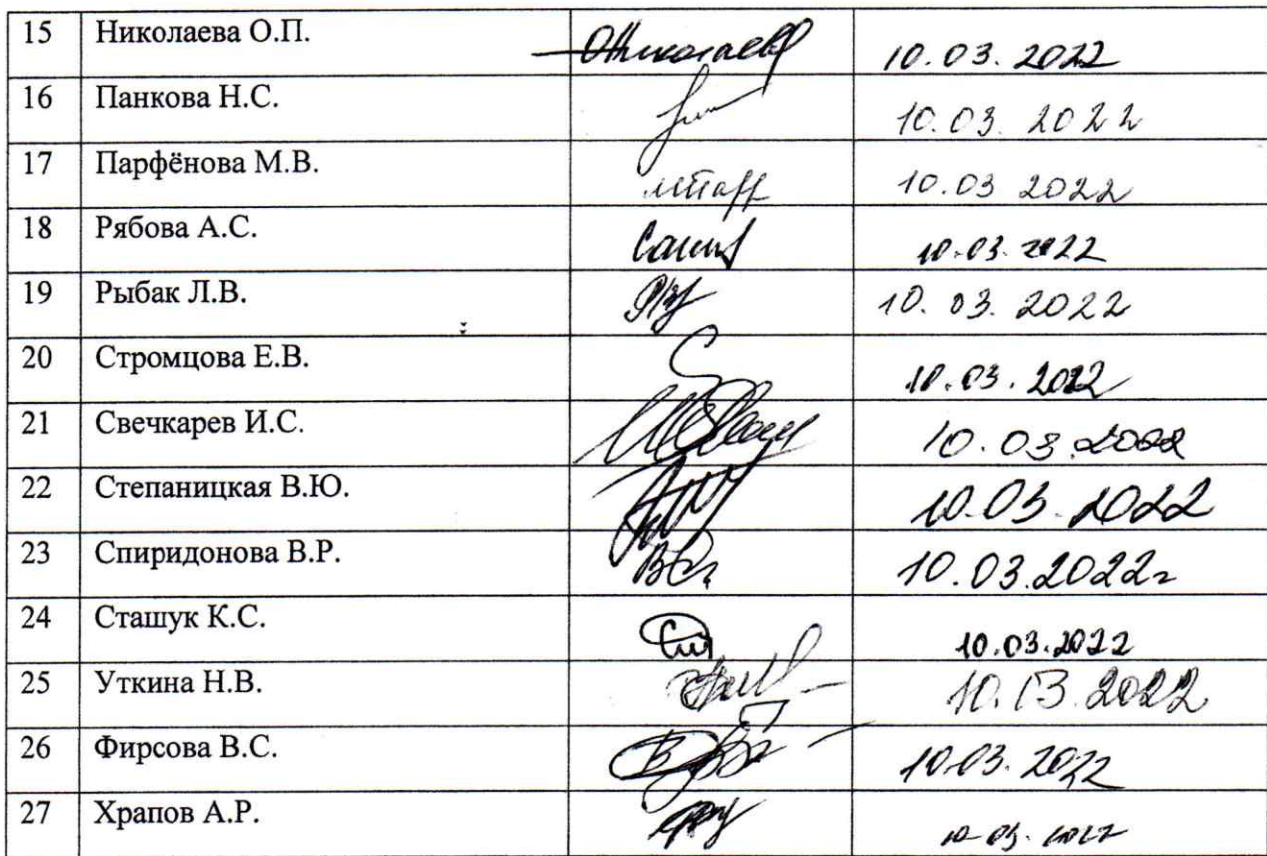 15 Николаева О.П. 10.03.2022
16 Панкова Н.С. 10.03.2022
17 Парфёнова М.В. 10.03 2022
18 Рябова А.С. 10.03.2022
19 Рыбак Л.В. 10.03.2022
20 Стромцова Е.В. 10.03.2022
21 Свечкарев И.С. 10.03.2022
22 Степаницкая В.Ю. 10.03.2022
23 Спиридонова В.Р. 10.03.2022г
24 Сташук К.С. 10.03.2022
25 Уткина Н.В. 10.03.2022
26 Фирсова В.С. 10.03.2022
27 Храпов А.Р. 10.03.2022